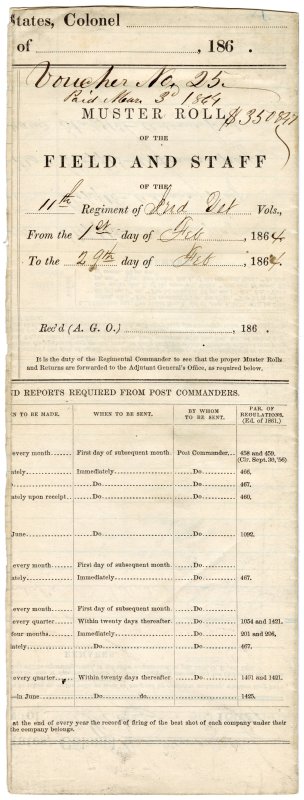 States, Colonel
of , 186 .
Voucher No, 25.
Paid Mar. 3d 1864
MUSTER ROLL $350847
OF THE
FIELD AND STAFF
OF THE
11th Regiment of Ind Vet Vols.,
From the 1st day of Feb , 1864
To the 29th day of Feb , 1864.
Rec'd (A. G. O.) , 186 .
It is the duty of the Regimental Commander to see that the proper Muster Rolls
and Returns are forwarded to the Adjutant General's Office, as required below.
ND REPORTS REQUIRED FROM POST COMMANDERS.
N TO BE MADE. WHEN TO BE SENT. BY WHOM TO BE SENT. PAR. OF REGULATIONS, (Ed. of 1861.)
every month First day of subsequent month. Post Commander 458 and 459. (Cir. Sept. 30, '56)
ately Immediately Do 466.
Do Do 467.
ately upon receipt Do Do 460.
June Do Do 1092.
every month First day of subsequent month Do
ately Immediately Do 467.
every month First day of subsequent month Do
every quarter Within twenty days thereafter Do 1054 and 1421.
four months Immediately Do 201 and 206.
ately Do Do 467.
every quarter Within twenty days thereafter Do 1401 and 1421.
—in June Do do. Do 1425.
at the end of every year the record of firing of the best shot of each company under their
the company belongs.